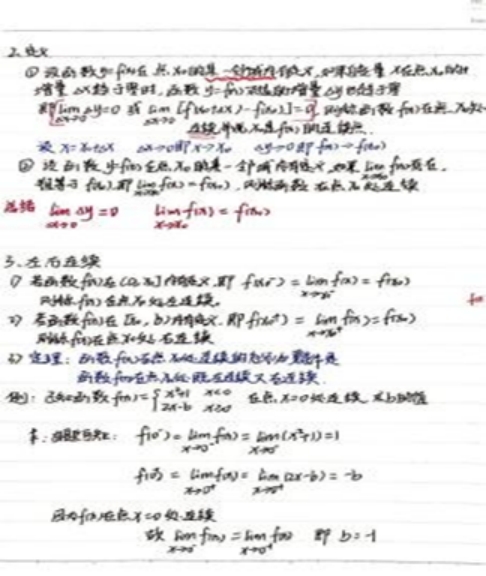 2. 定义
① 设函数 y=f(x)在点 x₀的某一邻域内有定义,如果自变量 x在点x₀处的
增量 Δx趋于零时,函数 y=f(x)对应的增量 Δy也趋于零
即 lim Δx→0 Δy=0 或 lim Δx→0 [f(x₀+Δx)-f(x₀)]=0,则称函数f(x)在点x₀处
连续,并称x₀是f(x)的连续点.
设 x=x₀+Δx Δx→0即x→x₀ Δy→0即f(x)→f(x₀)
② 设函数 y=f(x)在点x₀的某一邻域内有定义,如果 lim x→x₀ f(x)存在,
且等于 f(x₀),即 lim x→x₀ f(x)=f(x₀),则称函数在点x₀处连续
总结 lim Δx→0 Δy=0 lim x→x₀ f(x)=f(x₀)
3. 左右连续
1) 若函数f(x)在(a,x₀]内有定义,即 f(x₀⁻)=lim x→x₀⁻ f(x)=f(x₀)
则称f(x)在点x₀处左连续.
2) 若函数f(x)在[x₀,b)内有定义,即f(x₀⁺)=lim x→x₀⁺ f(x)=f(x₀)
则称f(x)在点x₀处右连续
3) 定理:函数f(x)在点x₀处连续的充分必要条件是
函数f(x)在点x₀处既左连续又右连续.
例1:已知函数f(x)={x²+1 x<0 2x-b x≥0 在点x=0处连续,求b的值
f(0⁻)=lim x→0⁻ f(x)=lim x→0⁻ (x²+1)=1
f(0⁺)=lim x→0⁺ f(x)=lim x→0⁺ (2x-b)=-b
因为f(x)在点x=0处连续
故 lim x→0⁻ f(x)=lim x→0⁺ f(x) 即 b=-1